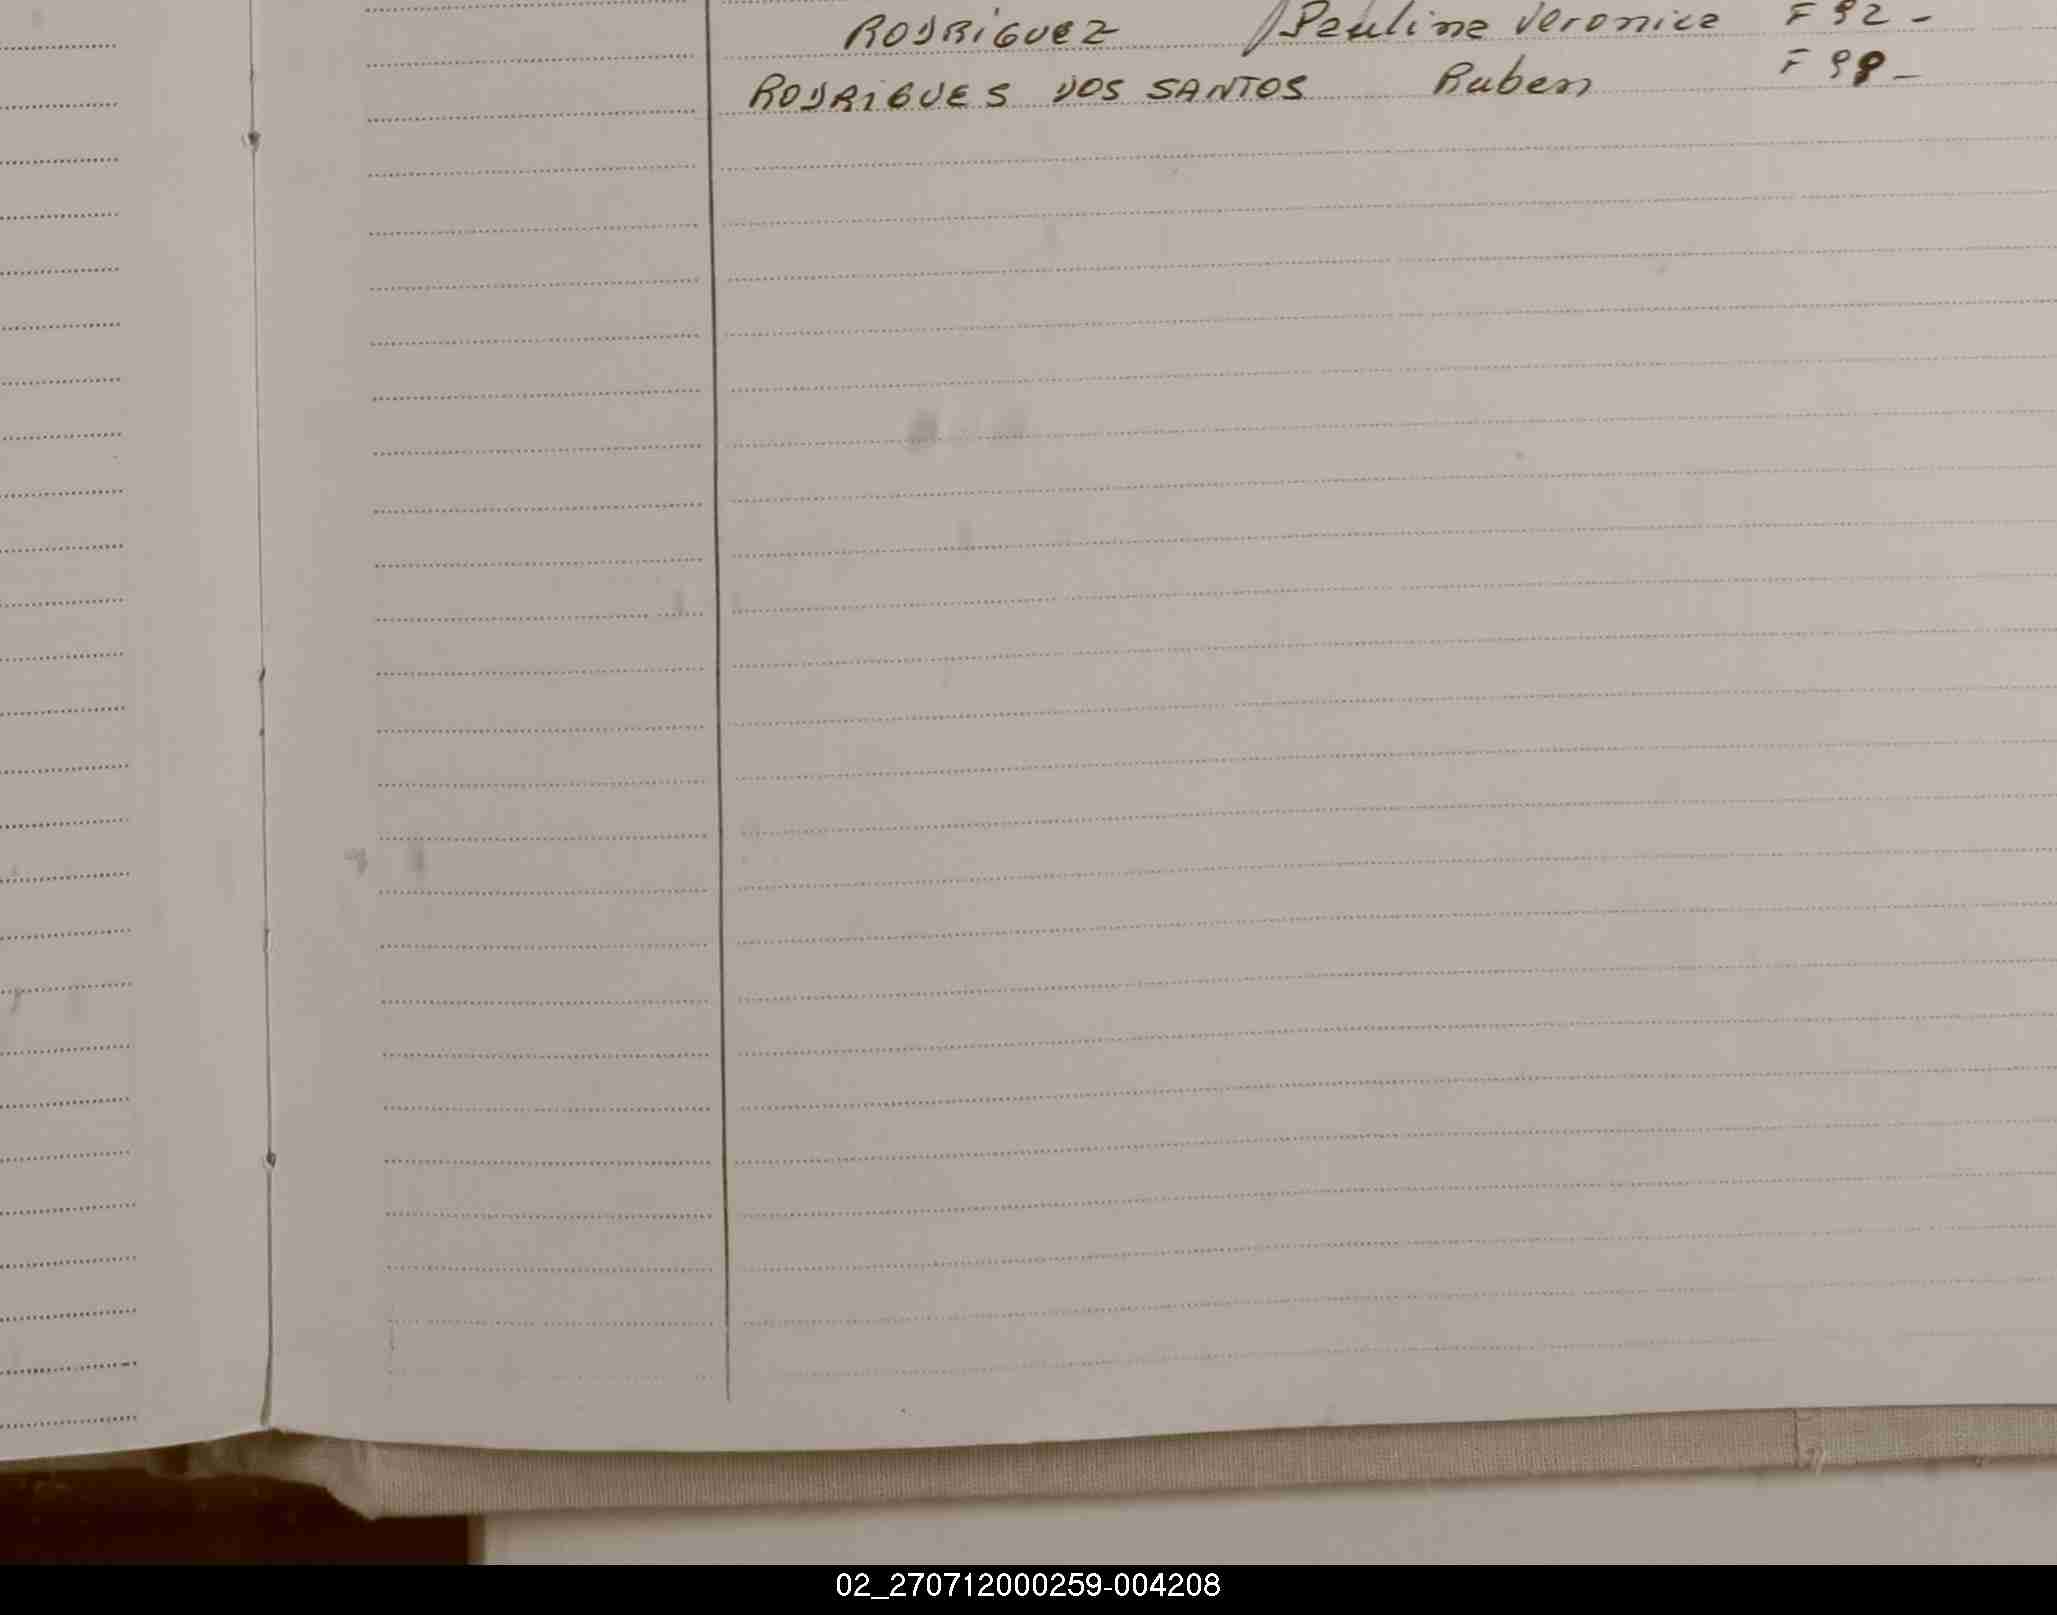 RODRIGUEZ Pauline Veronica F 92 -
RODRIGUES DOS SANTOS Ruben F 98 -
02_270712000259-004208